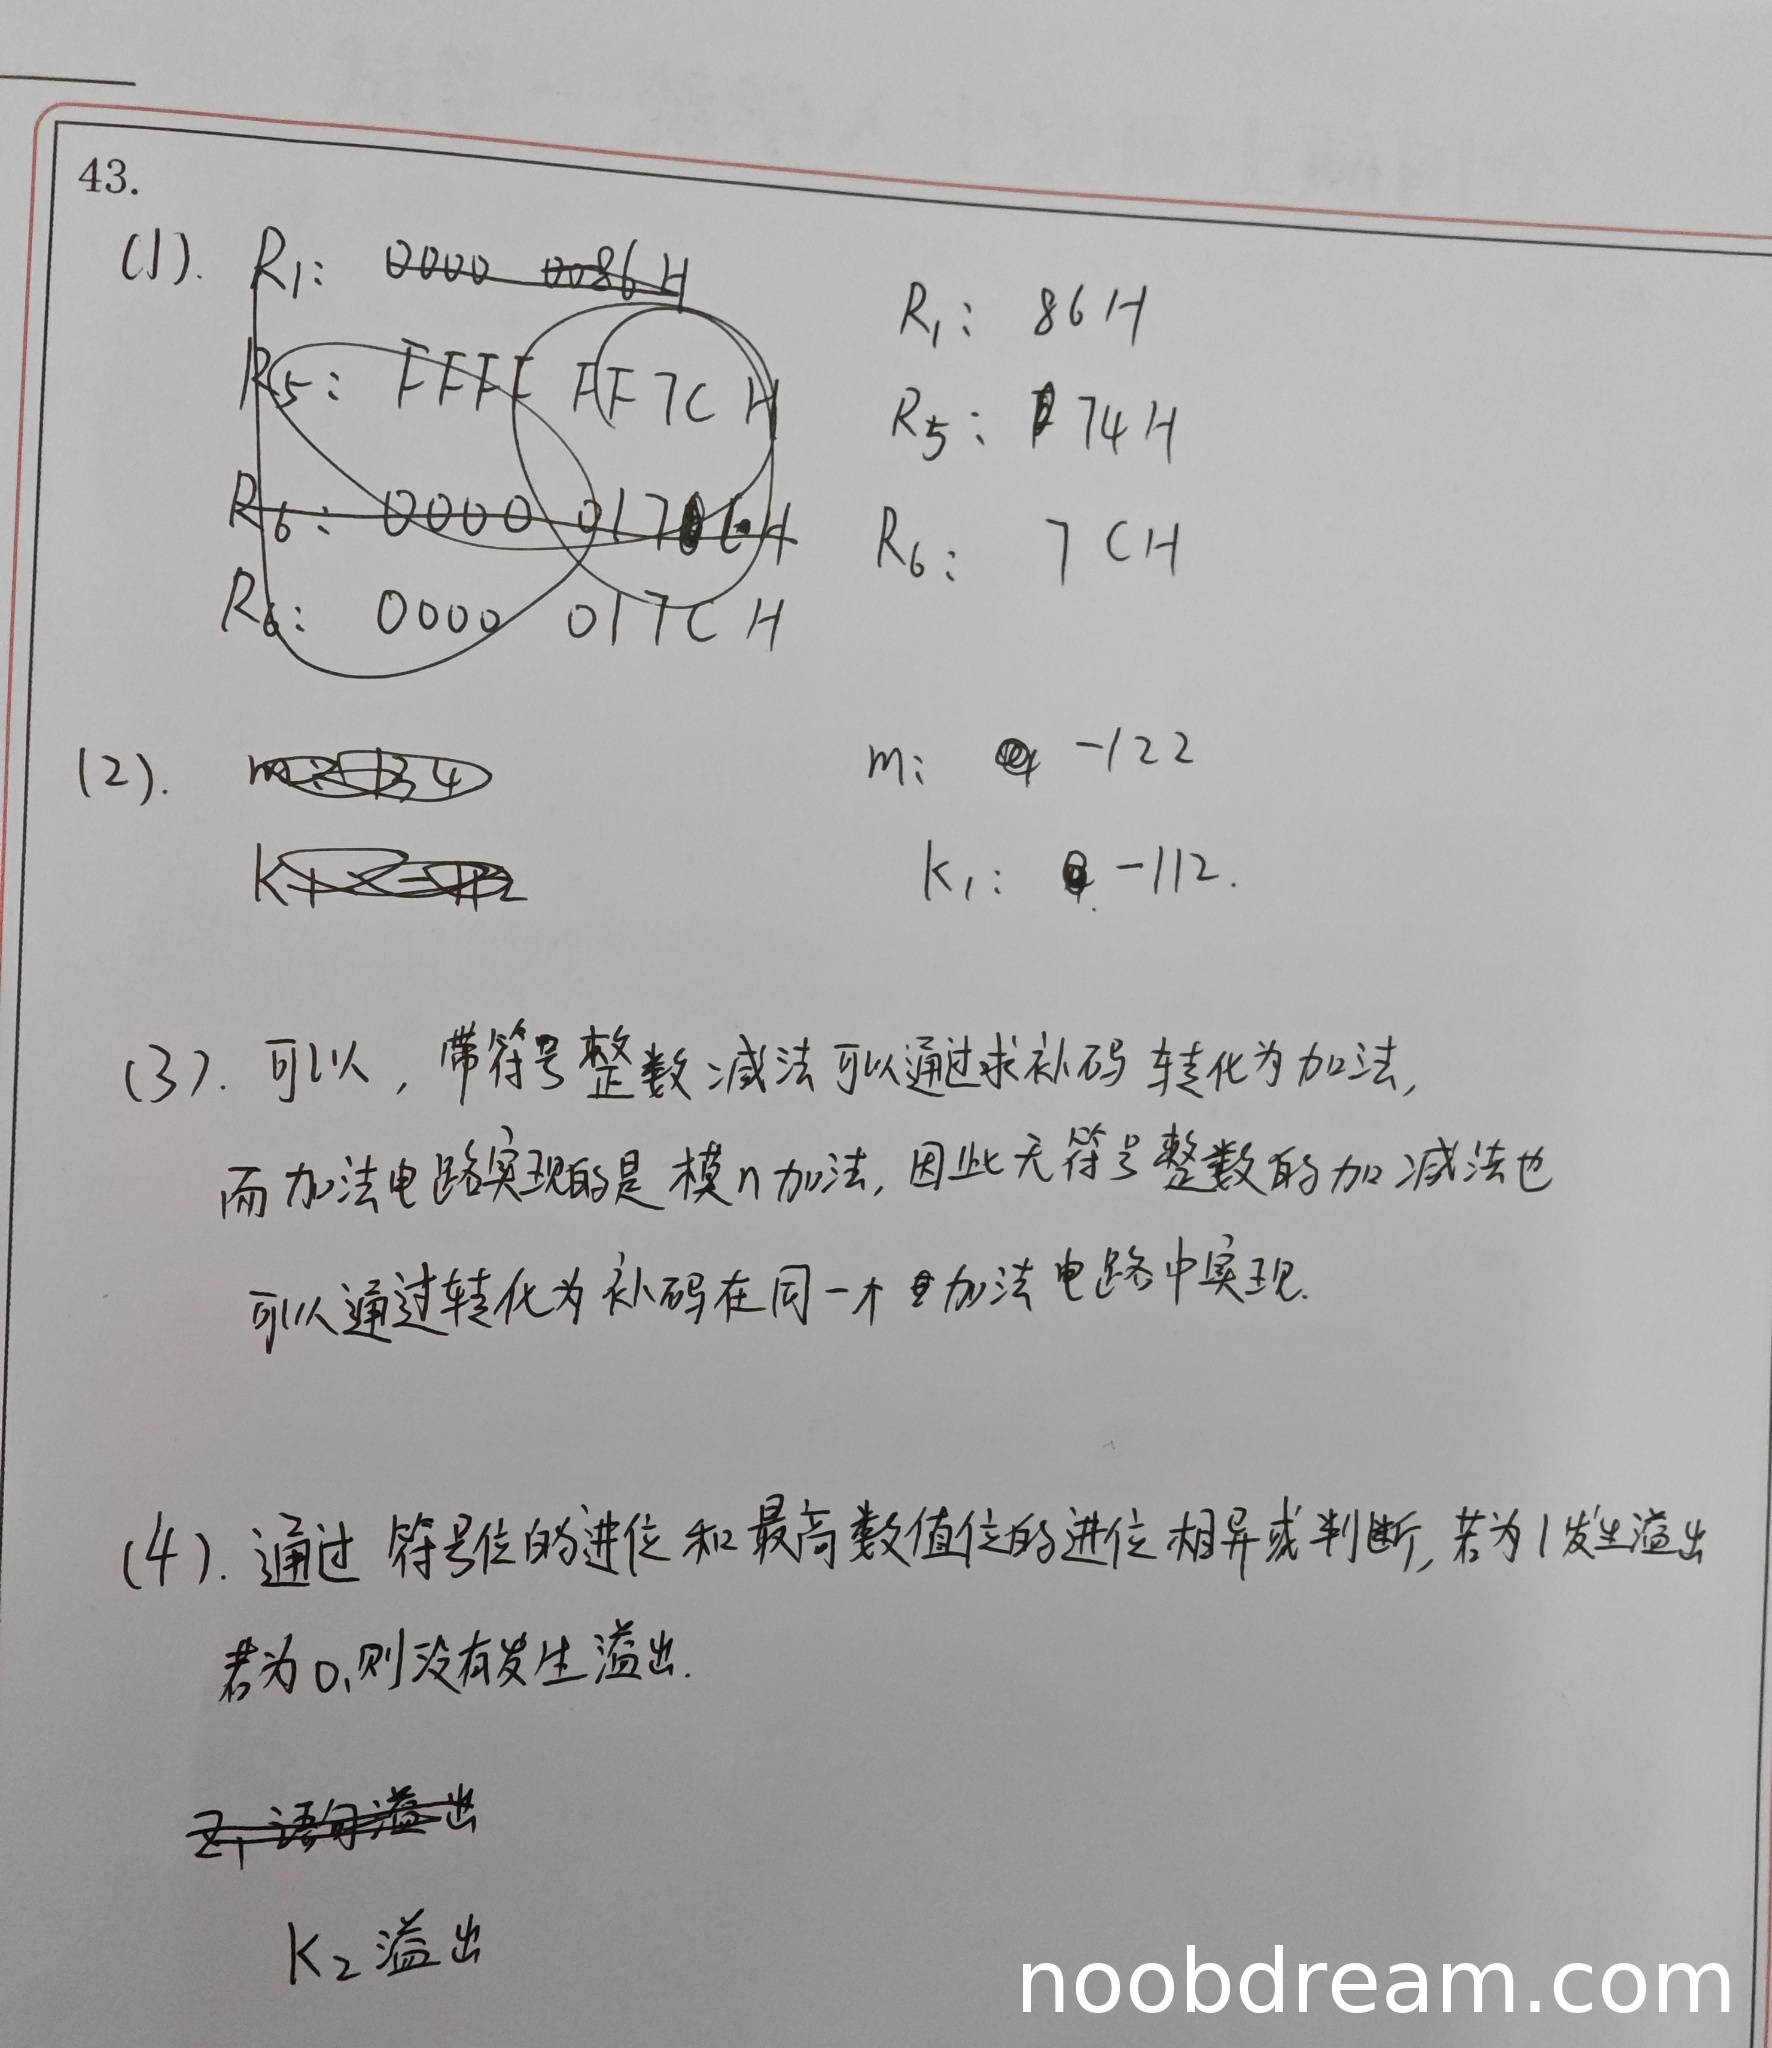 43.
(1). R1: 0000 0086H
R5: FFFF FF7CH
R6: 0000 017CH
R6: 0000 017CH
R1: 86H
R5: 74H
R6: 7CH
(2). m: 134
K1: -112
m: -122
K1: -112.
(3). 可以, 带符号整数减法可以通过求补码转化为加法,
而加法电路实现的是模n加法, 因此无符号整数的加减法也
可以通过转化为补码在同一个加法电路中实现.
(4). 通过 符号位的进位和最高数值位的进位相异或判断, 若为1发生溢出
若为0,则没有发生溢出.
Z1语句溢出
K2溢出
noobdream.com